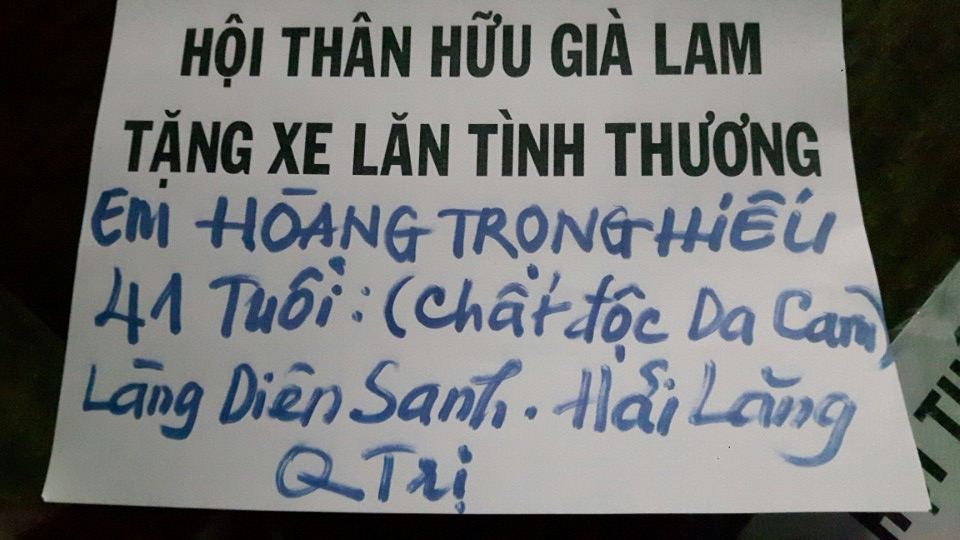 HỘI THÂN HỮU GIÀ LAM
TẶNG XE LĂN TÌNH THƯƠNG
Em HOÀNG TRỌNG HIẾU
41 Tuổi: (Chất độc Da Cam)
Làng Diên Sanh. Hải Lăng
Q Trị